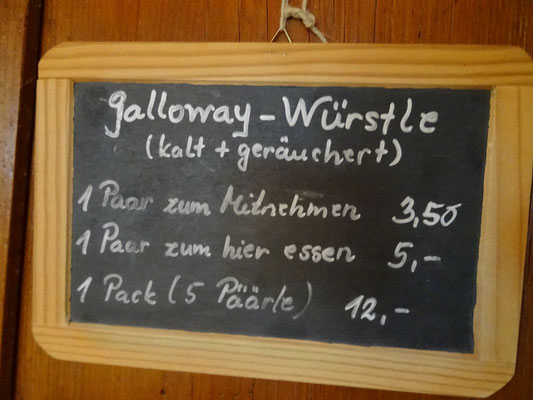 Galloway - Würstle
(kalt + geräuchert)
1 Paar zum Mitnehmen 3,50
1 Paar zum hier essen 5,-
1 Pack (5 Päärle) 12,-